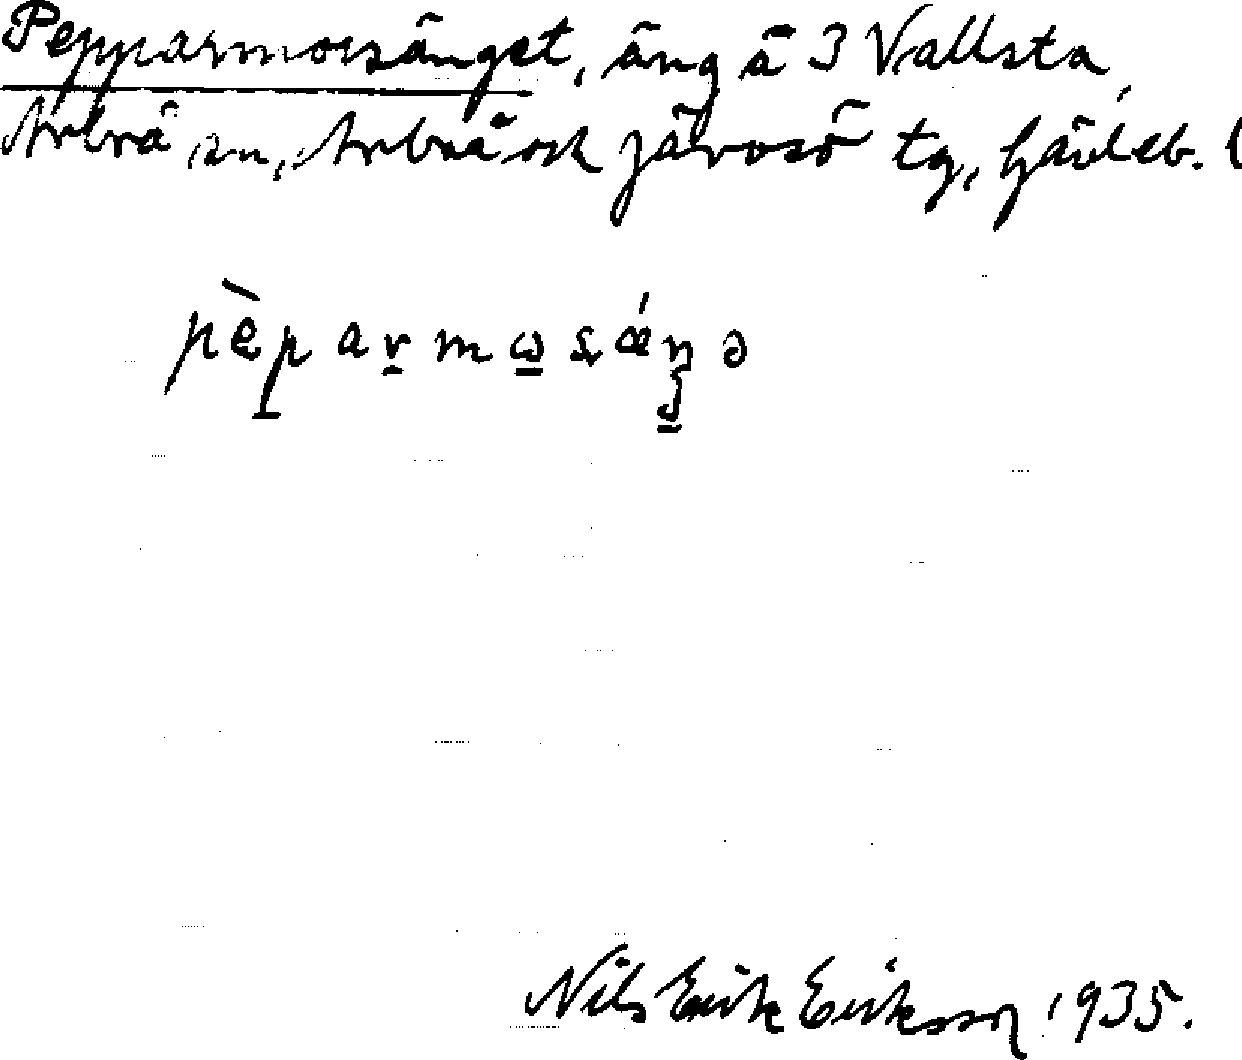 Pepparmorsänget, äng å 3 Vallsta,
Arbrå sn, Arbrå och Järvsö tg, Gävleb. l
pèparmωsǽŋə
Nils Erik Eriksson 1935.